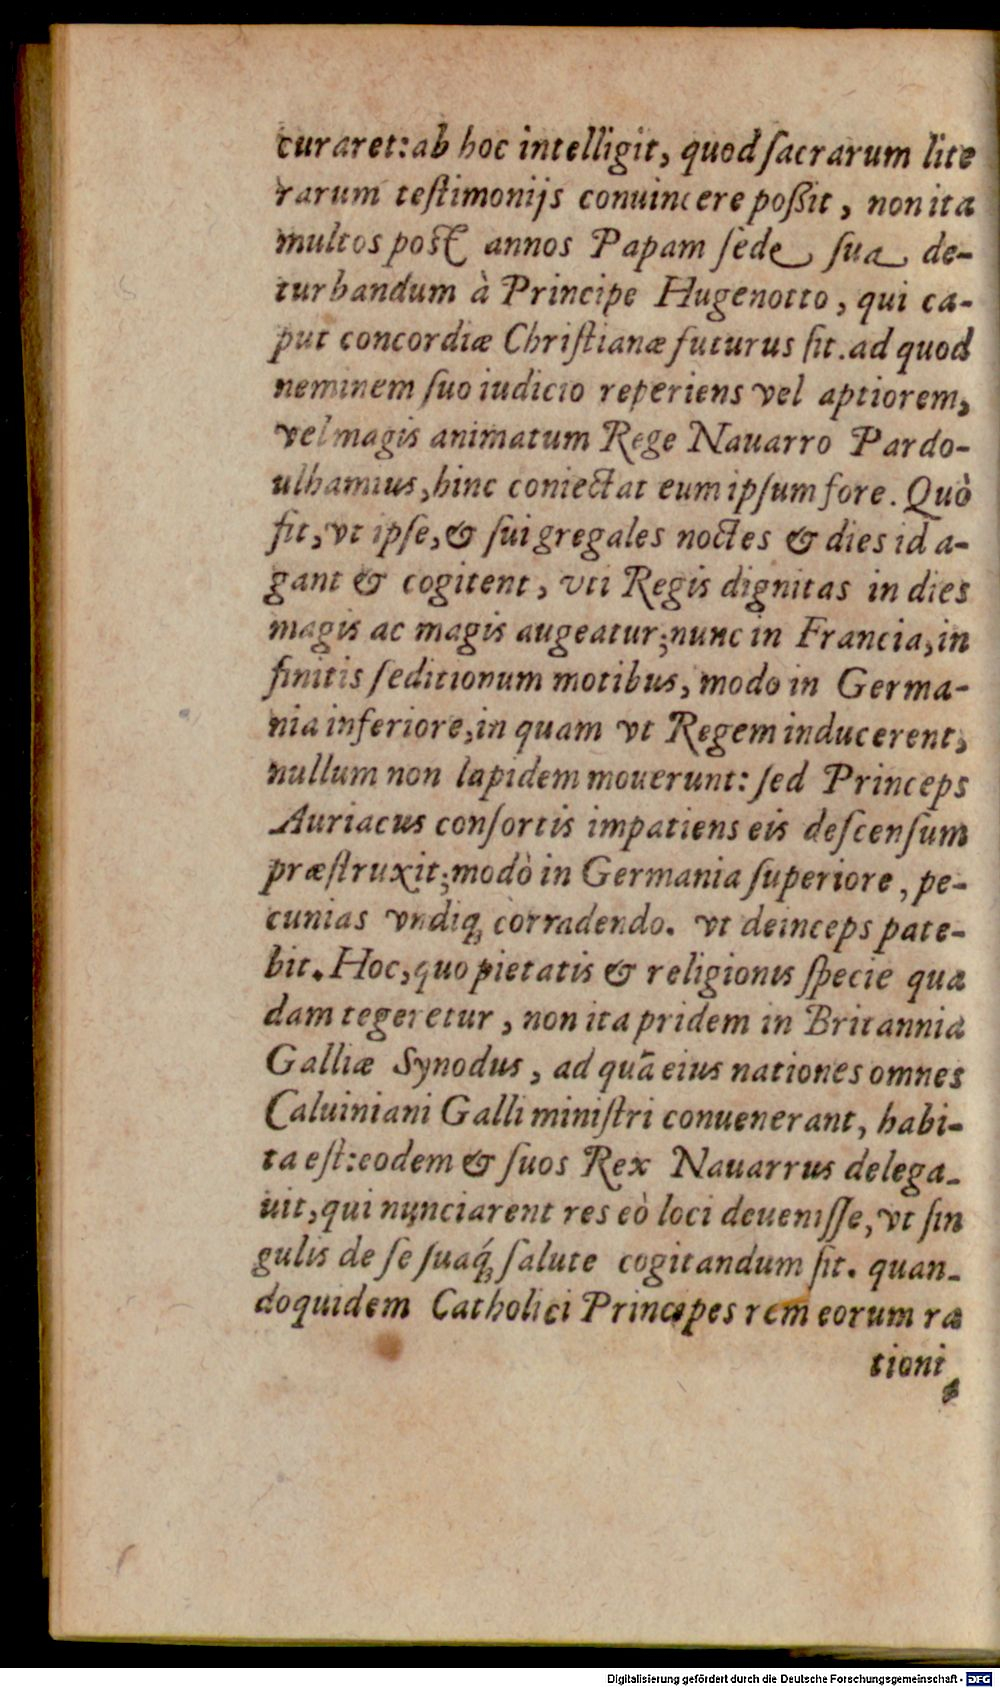 curaret: ab hoc intelligit, quod ſacrarum lite
rarum teſtimonijs conuincere poßit, non ita
multos poſt annos Papam ſede ſua de-
turbandum à Principe Hugenotto, qui ca-
put concordiæ Chriſtianæ futurus ſit. ad quod
neminem ſuo iudicio reperiens vel aptiorem,
vel magis animatum Rege Nauarro Pardo-
ulhamius, hinc coniectat eum ipſum fore. Quò
fit, vt ipſe, & ſui gregales noctes & dies id a-
gant & cogitent, vti Regis dignitas in dies
magis ac magis augeatur; nunc in Francia, in
finitis ſeditionum motibus, modo in Germa-
nia inferiore, in quam vt Regem inducerent,
nullum non lapidem mouerunt: ſed Princeps
Auriacus conſortis impatiens eis deſcenſum
præſtruxit; modò in Germania ſuperiore, pe-
cunias vndiq́; corradendo. vt deinceps pate-
bit. Hoc, quo pietatis & religionis ſpecie qua
dam tegeretur, non ita pridem in Britannia
Galliæ Synodus, ad quã eius nationes omnes
Caluiniani Galli miniſtri conuenerant, habi-
ta eſt: eodem & ſuos Rex Nauarrus delega-
uit, qui nunciarent res eò loci deueniſſe, vt ſin
gulis de ſe ſuaq́; ſalute cogitandum ſit. quan-
doquidem Catholici Principes rem eorum ra
tioni
Digitalisierung gefördert durch die Deutsche Forschungsgemeinschaft - DFG